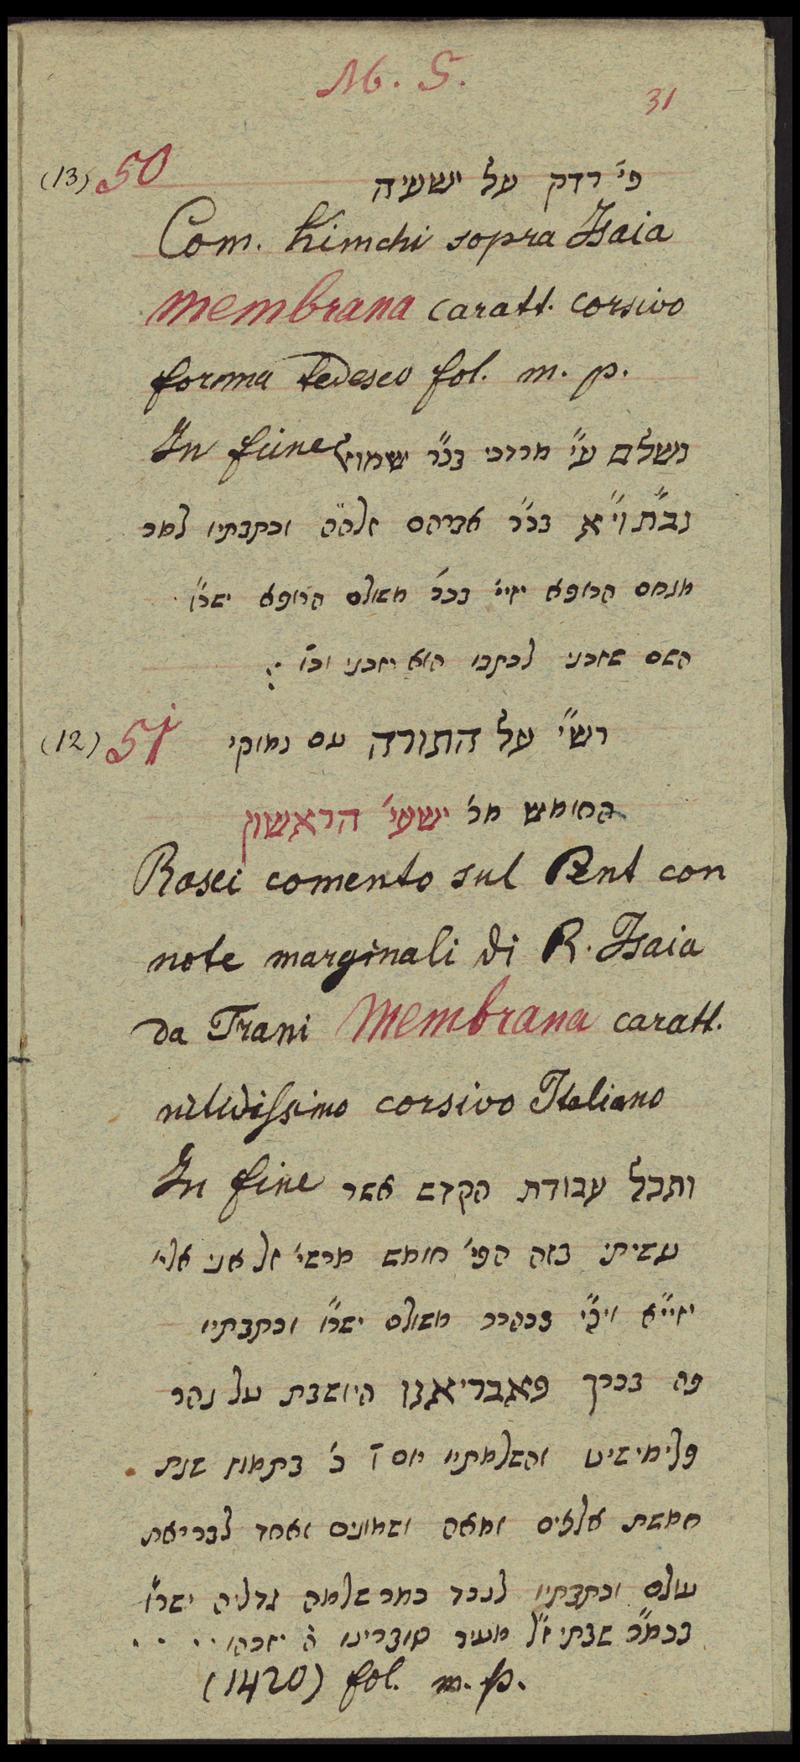 M. S.
31
(13) 50 פי' רדק על ישעיה
Com. Kimchi sopra Isaia
membrana caratt. corsivo
forma tedesco fol. m. p.
In fine נשלם ע"י מרדכי בכ"ר שמואל
נב"ת וי"א בכ"ר אברהם זלה"ה וכתבתיו למר
מנחם הרופא יזיי' בכר' משולם הרופא ישר"ו
השם שזכני לכתבו הוא יזכני וכו'
(12) 51 רש"י על התורה עם נמוקי
החומש מר' ישעי' הראשון
Rasci comento sul Pent con
note marginali di R. Isaia
da Trani Membrana caratt.
nitidissimo corsivo Italiano
In fine ותכל עבודת הקדש אשר
עשיתי בזה הפי' חומש מרשי' זל אני
יזי"א בכהרר משולם ישר"ו וכתבתיו
פה בכרך פאבריאנו היושבת על נהר
והשלמתיו יום ו' כ' בתמוז שנת
חמשת אלפים ומאה ושמונים ואחד לבריאת
עולם וכתבתיו לנכד כמר שלמה גדליה ישר"ו
בכמ"ר שבתי ז"ל מעיר ה' יזכהו . . . .
(1420) fol. m. p.